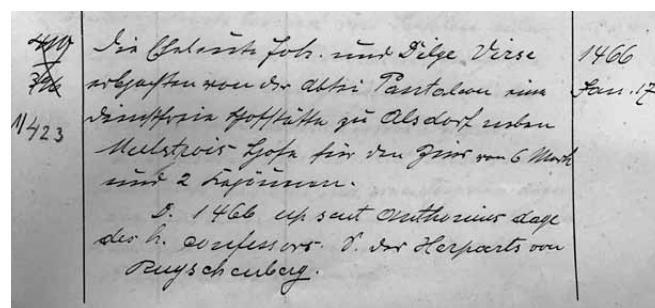 419
316
1/423
Die Eheleute Joh. und Dilge Virse
erbpachten von der Abtei Pantaleon eine
dienstfreie Hofstätte zu Alsdorf neben
Meelstrois Hofe für den Zins von 6 Mark
und 2 Kapäunen.
D. 1466 up sent Anthonius dage
des h. confessors. S. der Herparts von
Ruyschenberg.
1466
Jan. 17